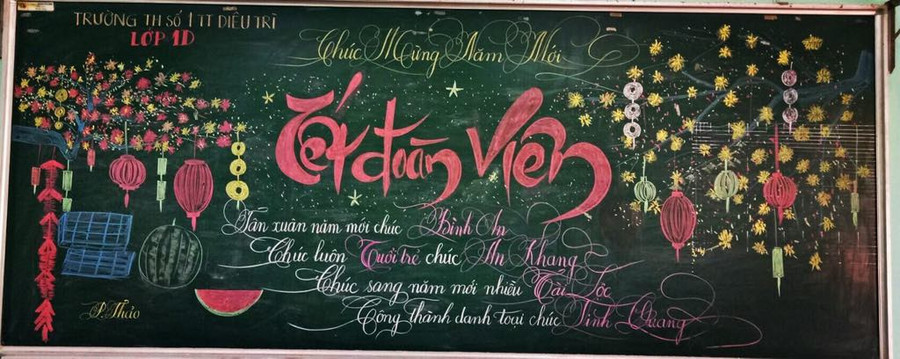 TRƯỜNG TH SỐ 1 TT DIÊU TRÌ
LỚP 1D
Chúc Mừng Năm Mới
Tết đoàn Viên
Tân xuân năm mới chúc Bình An
Chúc luôn Tươi trẻ chúc An Khang
Chúc sang năm mới nhiều Tài Lộc
Công thành danh toại chúc Vinh Quang
P.Thảo